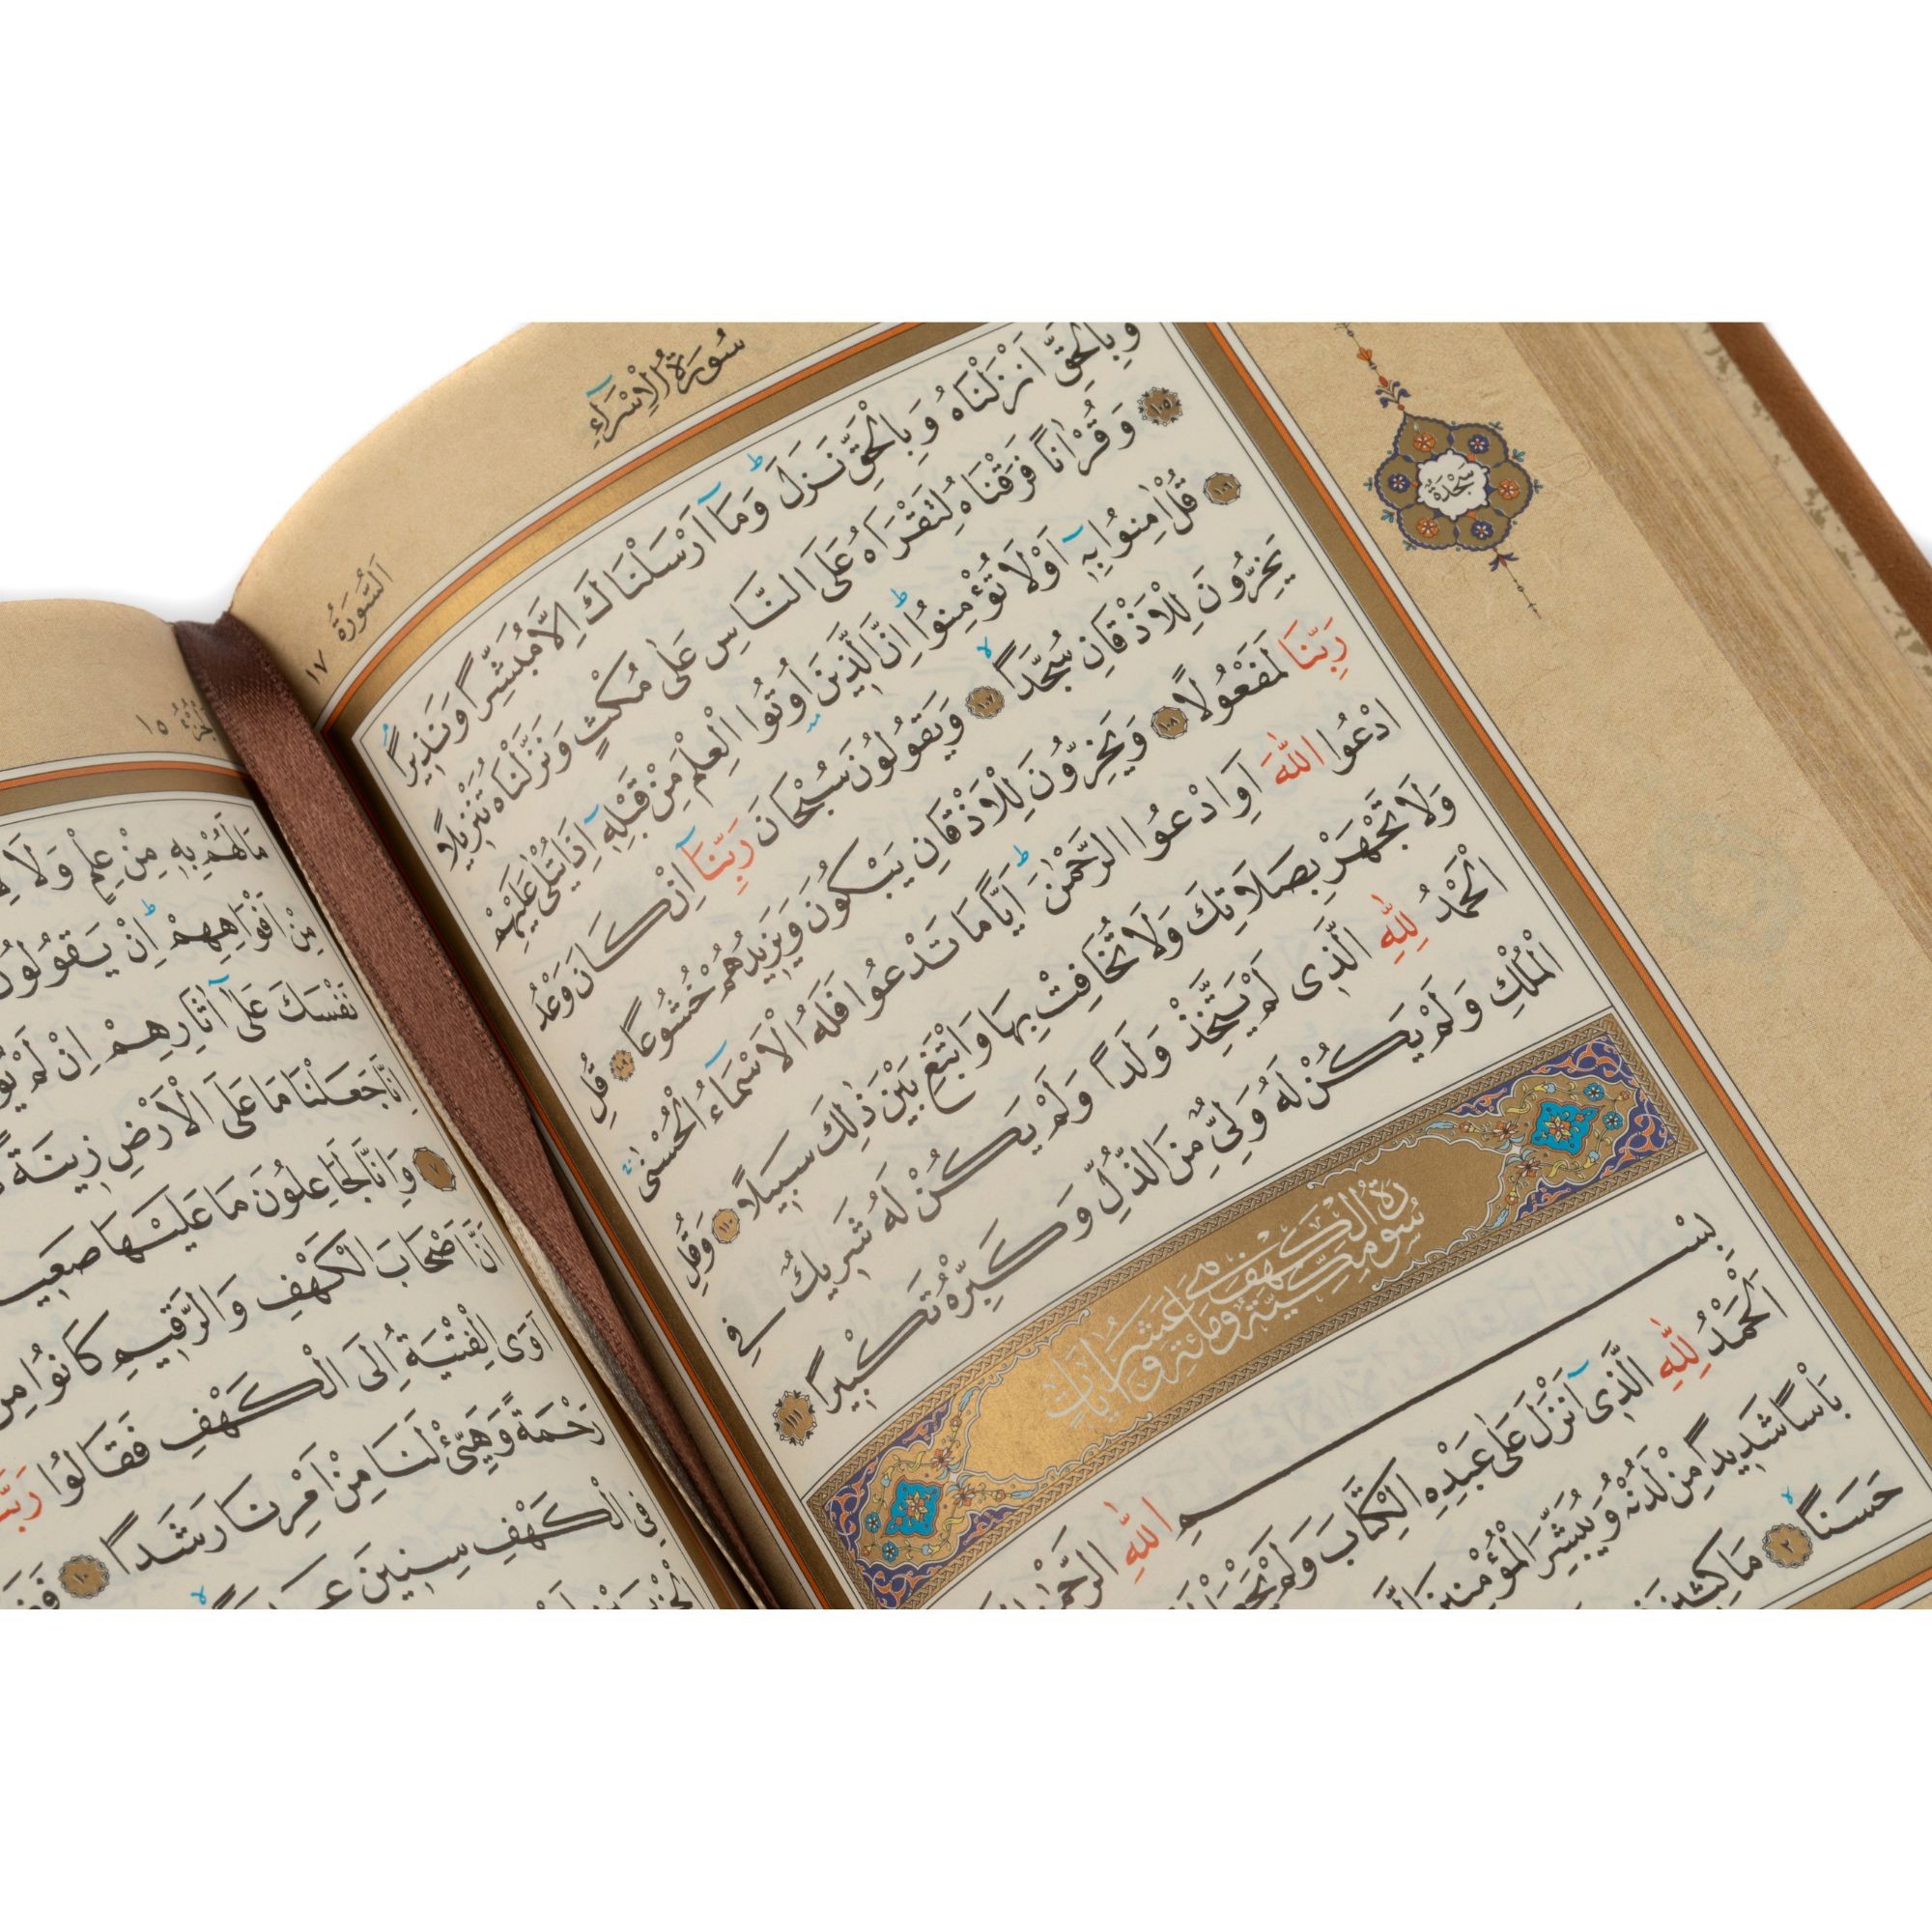 سُورَةُ الْاِسْرَآءِ
اَلسُّورَةُ ١٧
وَبِالْحَقِّ اَنْزَلْنَاهُ وَبِالْحَقِّ نَزَلَ ط وَمَٓا اَرْسَلْنَاكَ اِلَّا مُبَشِّرًا وَنَذِيرًا
١٠٥ وَقُرْاٰنًا فَرَقْنَاهُ لِتَقْرَاَهُ عَلَى النَّاسِ عَلٰى مُكْثٍ وَنَزَّلْنَاهُ تَنْزِيلًا
١٠٦ قُلْ اٰمِنُوا بِهِٓ اَوْ لَا تُؤْمِنُوا ط اِنَّ الَّذِينَ اُو۫تُوا الْعِلْمَ مِنْ قَبْلِهِٓ اِذَا يُتْلٰى عَلَيْهِمْ
يَخِرُّونَ لِلْاَذْقَانِ سُجَّدًا لا ١٠٧ وَيَقُولُونَ سُبْحَانَ رَبِّنَٓا اِنْ كَانَ وَعْدُ
رَبِّنَا لَمَفْعُولًا ١٠٨ وَيَخِرُّونَ لِلْاَذْقَانِ يَبْكُونَ وَيَزِيدُهُمْ خُشُوعًا ١٠٩ قُلِ
ادْعُوا اللّٰهَ اَوِ ادْعُوا الرَّحْمٰنَ ط اَيًّا مَا تَدْعُوا فَلَهُ الْاَسْمَٓاءُ الْحُسْنٰى ج
وَلَا تَجْهَرْ بِصَلَاتِكَ وَلَا تُخَافِتْ بِهَا وَابْتَغِ بَيْنَ ذٰلِكَ سَبِيلًا ١١٠ وَقُلِ
الْحَمْدُ لِلّٰهِ الَّذِى لَمْ يَتَّخِذْ وَلَدًا وَلَمْ يَكُنْ لَهُ شَرِيكٌ فِى
الْمُلْكِ وَلَمْ يَكُنْ لَهُ وَلِىٌّ مِنَ الذُّلِّ وَكَبِّرْهُ تَكْبِيرًا ١١١
سُورَةُ الْكَهْفِ مَكِّيَّةٌ وَهِىَ مِائَةٌ وَعَشْرُ اٰيَاتٍ
بِسْمِ اللّٰهِ الرَّحْمٰنِ
اَلْحَمْدُ لِلّٰهِ الَّذِٓى اَنْزَلَ عَلٰى عَبْدِهِ الْكِتَابَ وَلَمْ يَجْعَلْ
بَأْسًا شَدِيدًا مِنْ لَدُنْهُ وَيُبَشِّرَ الْمُؤْمِنِينَ
حَسَنًا لا ٢ مَاكِثِينَ
سَجْدَة
١٥
مَا لَهُمْ بِهِ مِنْ عِلْمٍ وَلَا
مِنْ اَفْوَاهِهِمْ ط اِنْ يَقُولُونَ
نَفْسَكَ عَلٰٓى اٰثَارِهِمْ اِنْ لَمْ
اِنَّا جَعَلْنَا مَا عَلَى الْاَرْضِ زِينَةً
٧ وَاِنَّا لَجَاعِلُونَ مَا عَلَيْهَا
اَنَّ اَصْحَابَ الْكَهْفِ وَالرَّقِيمِ كَانُوا مِنْ
اَوَى الْفِتْيَةُ اِلَى الْكَهْفِ فَقَالُوا
رَحْمَةً وَهَيِّئْ لَنَا مِنْ اَمْرِنَا رَشَدًا ١٠
فِى الْكَهْفِ سِنِينَ